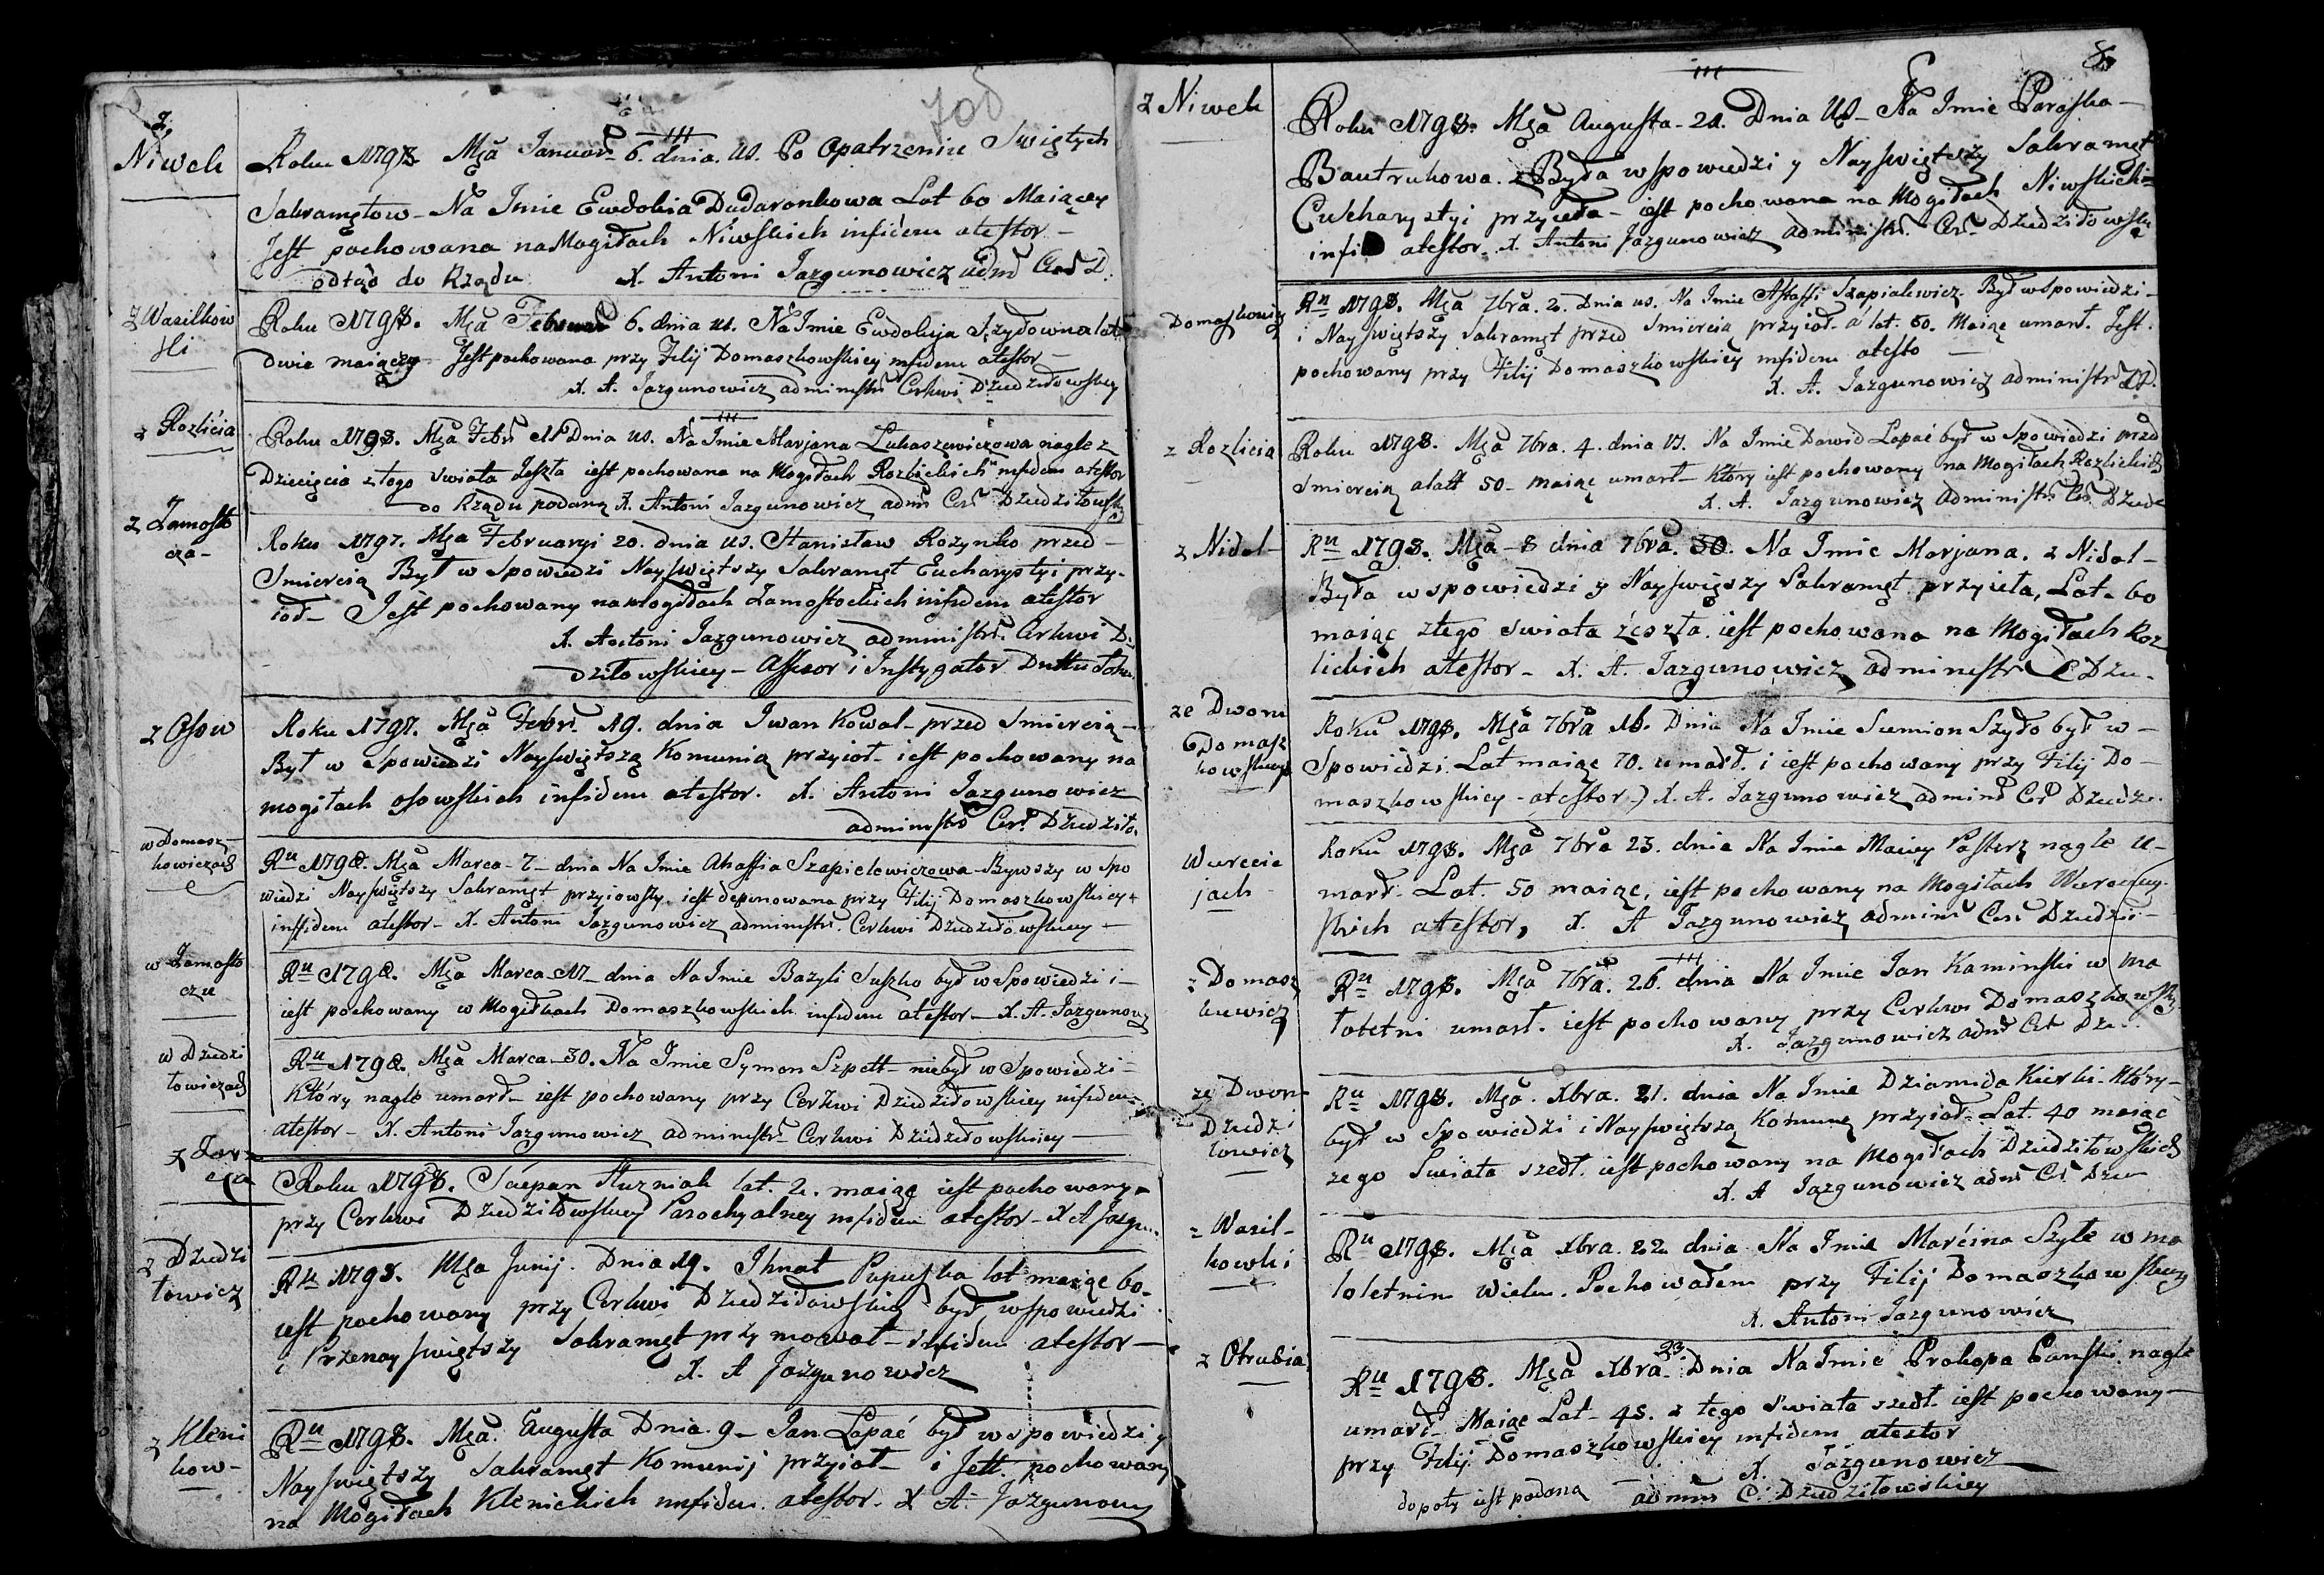 708
z Niwek
Roku 1798 Mca Januar. 6. dnia. us. Po Opatrzeniu Swiętych
Sakramętow - Na Jmie Ewdokia Dudaronkowa Lat 60 Maiącey
Jest pochowana na Mogiłach Niwskich infidem atestor -
odtąd do Rządu X. Antoni Jazgunowicz adm
z Wasilkow
ski
Roku 1798. Mca Februar 6. dnia us. Na Jmie Ewdokija Szydowna lat
dwie maiącey Jest pochowana przy Filij Domaszkowskiey infidem atestor -
X. A. Jazgunowicz administr Cerkwi Dziedziłowskiey
z Rozlicia
Roku 1798. Mca Febr 11 Dnia us. Na Jmie Marjana Lukaszewiczowa nagle z
Dziecięcia z tego Swiata Zeszła iest pochowana na Mogiłach Rozlickich infidem atestor
do Rządu podana X. Antoni Jazgunowicz adm Cer Dziedziłowsk
z Zamosto
cza -
Roku 1797. Mca Februaryi 20. dnia us. Stanisław Rozynko przed -
Smiercią Był w Spowiedzi Nayswiętszy Sakramęt Eucharystyi przy-
ioł - Jest pochowany na Mogiłach Zamostockich infidem atestor
X. Antoni Jazgunowicz administr. Cerkwi D
dziłowskiey - Assesor i Instygator
z Osow
Roku 1797. Mca Febr. 19. dnia Iwan Kowal - przed Smiercią -
Był w Spowiedzi Nayswiętszą Komunią przyioł - iest pochowany na
mogiłach osowskich infidem atestor. X. Antoni Jazgunowicz
administr Cer. Dziedziło.
w Domasz
kowiczach
Ru 1798. Mca Marca - 7 - dnia Na Jmie Ahaffia Szapielewiczowa - Bywszy w Spo
wiedzi Nayswiętszy Sakramęt przyiowszy iest deponowana przy Filij Domaszkowskiey
infidem atestor - X. Antoni Jazgunowicz administr. Cerkwi Dziedziłowskiey
w Zamosto
czu
Ru 1798. Mca Marca 17 - dnia Na Jmie Bazyli Suszko był w Spowiedzi i -
iest pochowany w Mogiłkach Domaszkowskich infidem atestor - X. A. Jazgunow
w Dziedzi
łowiczach
Ru 1798. Mca Marca - 30. Na Jmie Symon Szpett - niebył w Spowiedzi -
Który nagle umarł - iest pochowany przy Cerkwi Dziedziłowskiey infidem
atestor - X. Antoni Jazgunowicz administr - Cerkwi Dziedziłowskiey -
z Zarz
ecza
Roku 1798. Sćiepan Huzniak lat. 2. maiąc iest pochowany
przy Cerkwi Dziedziłowskiey Parochyalney infidem atestor - X A Jazgu
z Dziedzi
łowicz
Ru 1798. Mca Junij. Dnia 19. Ihnat Pupuszka lat maiąc 60.
iest pochowany przy Cerkwi Dziedziłowskiey był w spowiedzi
i Przenayswiętszy Sakramęt przymował - infidem atestor -
X. A Jazgunowicz
z Kleni
kow -
Ru 1798. Mca. Augusta Dnia. 9 - Jan Łapać był w spowiedzi y
Nayswiętszy Sakramęt Komunij przyioł - i Jest. pochowany
na Mogiłach Klenickich infidem. atestor. X A. Jazgunow
8
z Niwek
Roku 1798. Mca Augusta - 21. Dnia us - Na Jmie Paraska -
Bautrukowa. Była w spowiedzi y Nayswiętszy Sakramęt
Eucharystyi przyieła - iest pochowana na Mogiłach Niwskich
infi atestor. X. Antoni Jazgunowicz administr. Cer. Dziedziłowsk
Domaszkowicz
Ru 1798. Mca 7bra. 2. Dnia us. Na Jmie Astaffi Szapialewicz. Był w Spowiedzi -
i Nayswiętszy Sakramęt przed Smiercią przyioł - a lat. 50. Maiąc umarł. Jest.
pochowany przy Filij Domaszkowskiey infidem atesto -
X. A. Jazgunowicz administr
z Rozlicia
Roku 1798. Mca 7bra. 4. dnia us. Na Jmie Dawid Łapać był w Spowiedzi przed
Smiercią a latt 50 - maiąc umarł - Który iest pochowany na Mogiłach Rozlickich
X. A. Jazgunowicz Administr. Cer. Dziedz
z Nidal -
Ru 1798. Mca - 8 dnia 7bra. 30. Na Jmie Marjana. z Nidal -
Była w spowiedzi y Nayswięszy Sakramęt. przyieła, Lat. 60
maiąc ztego swiata żeszła. iest pochowana na Mogiłach Roz
lickich atestor - X. A. Jazgunowicz administr C Dzie.
ze Dworu
Domasz
kowskiego
Roku 1798. Mca 7bra 16. Dnia Na Jmie Siemion Szyło był w -
Spowiedzi. Lat maiąc 70. umarł. i iest pochowany przy Filij Do -
maszkowskiey - atestor -) X. A. Jazgunowicz admin Cer Dziedz.
Wurecie
jach
Roku 1798. Mca 7bra 23. dnia Na Jmie Maciey Pasterz nagle u -
marł - Lat. 50 maiąc, iest pochowany na Mogiłach
skich atestor, X. A Jazgunowicz admini Cer. Dziedzi -
z Domasz
kiewicz
Ru 1798. Mca 7bra. 26. dnia Na Jmie Jan Kaminski w ma
łoletni umarł. iest pochowany przy Cerkwi Domaszkowsk
X. Jazgunowicz adm Cer Dzie
ze Dworu
Dziedzi
łowicz
Ru 1798. Mca. Xbra. 21. dnia Na Jmie Dziamida Kierki - Który -
był w Spowiedzi i Nayswiętszą Komunę przyioł - Lat. 40 maiąc
zego Swiata szedł. iest pochowany na Mogiłach Dziedziłowskich
X. A Jazgunowicz adm Cer Dzie
z Wasil -
kowki
Ru 1798. Mca Xbra. 22. dnia Na Jmie Marćina Szyłe w ma
loletnim wieku. Pochowałem przy Filij Domaszkowskiey
X. Antoni Jazgunowicz
z Otrubia
Ru 1798. Mca Xbra. 23. Dnia Na Jmie Prokopa nagle
umarł - Maiąc Lat - 45. z tego Swiata szedł. iest pochowany -
przy Filij Domaszkowskiey infidem atestor
X. Jazgunowicz
dopoty iest podana admin C. Dziedziłowskiey